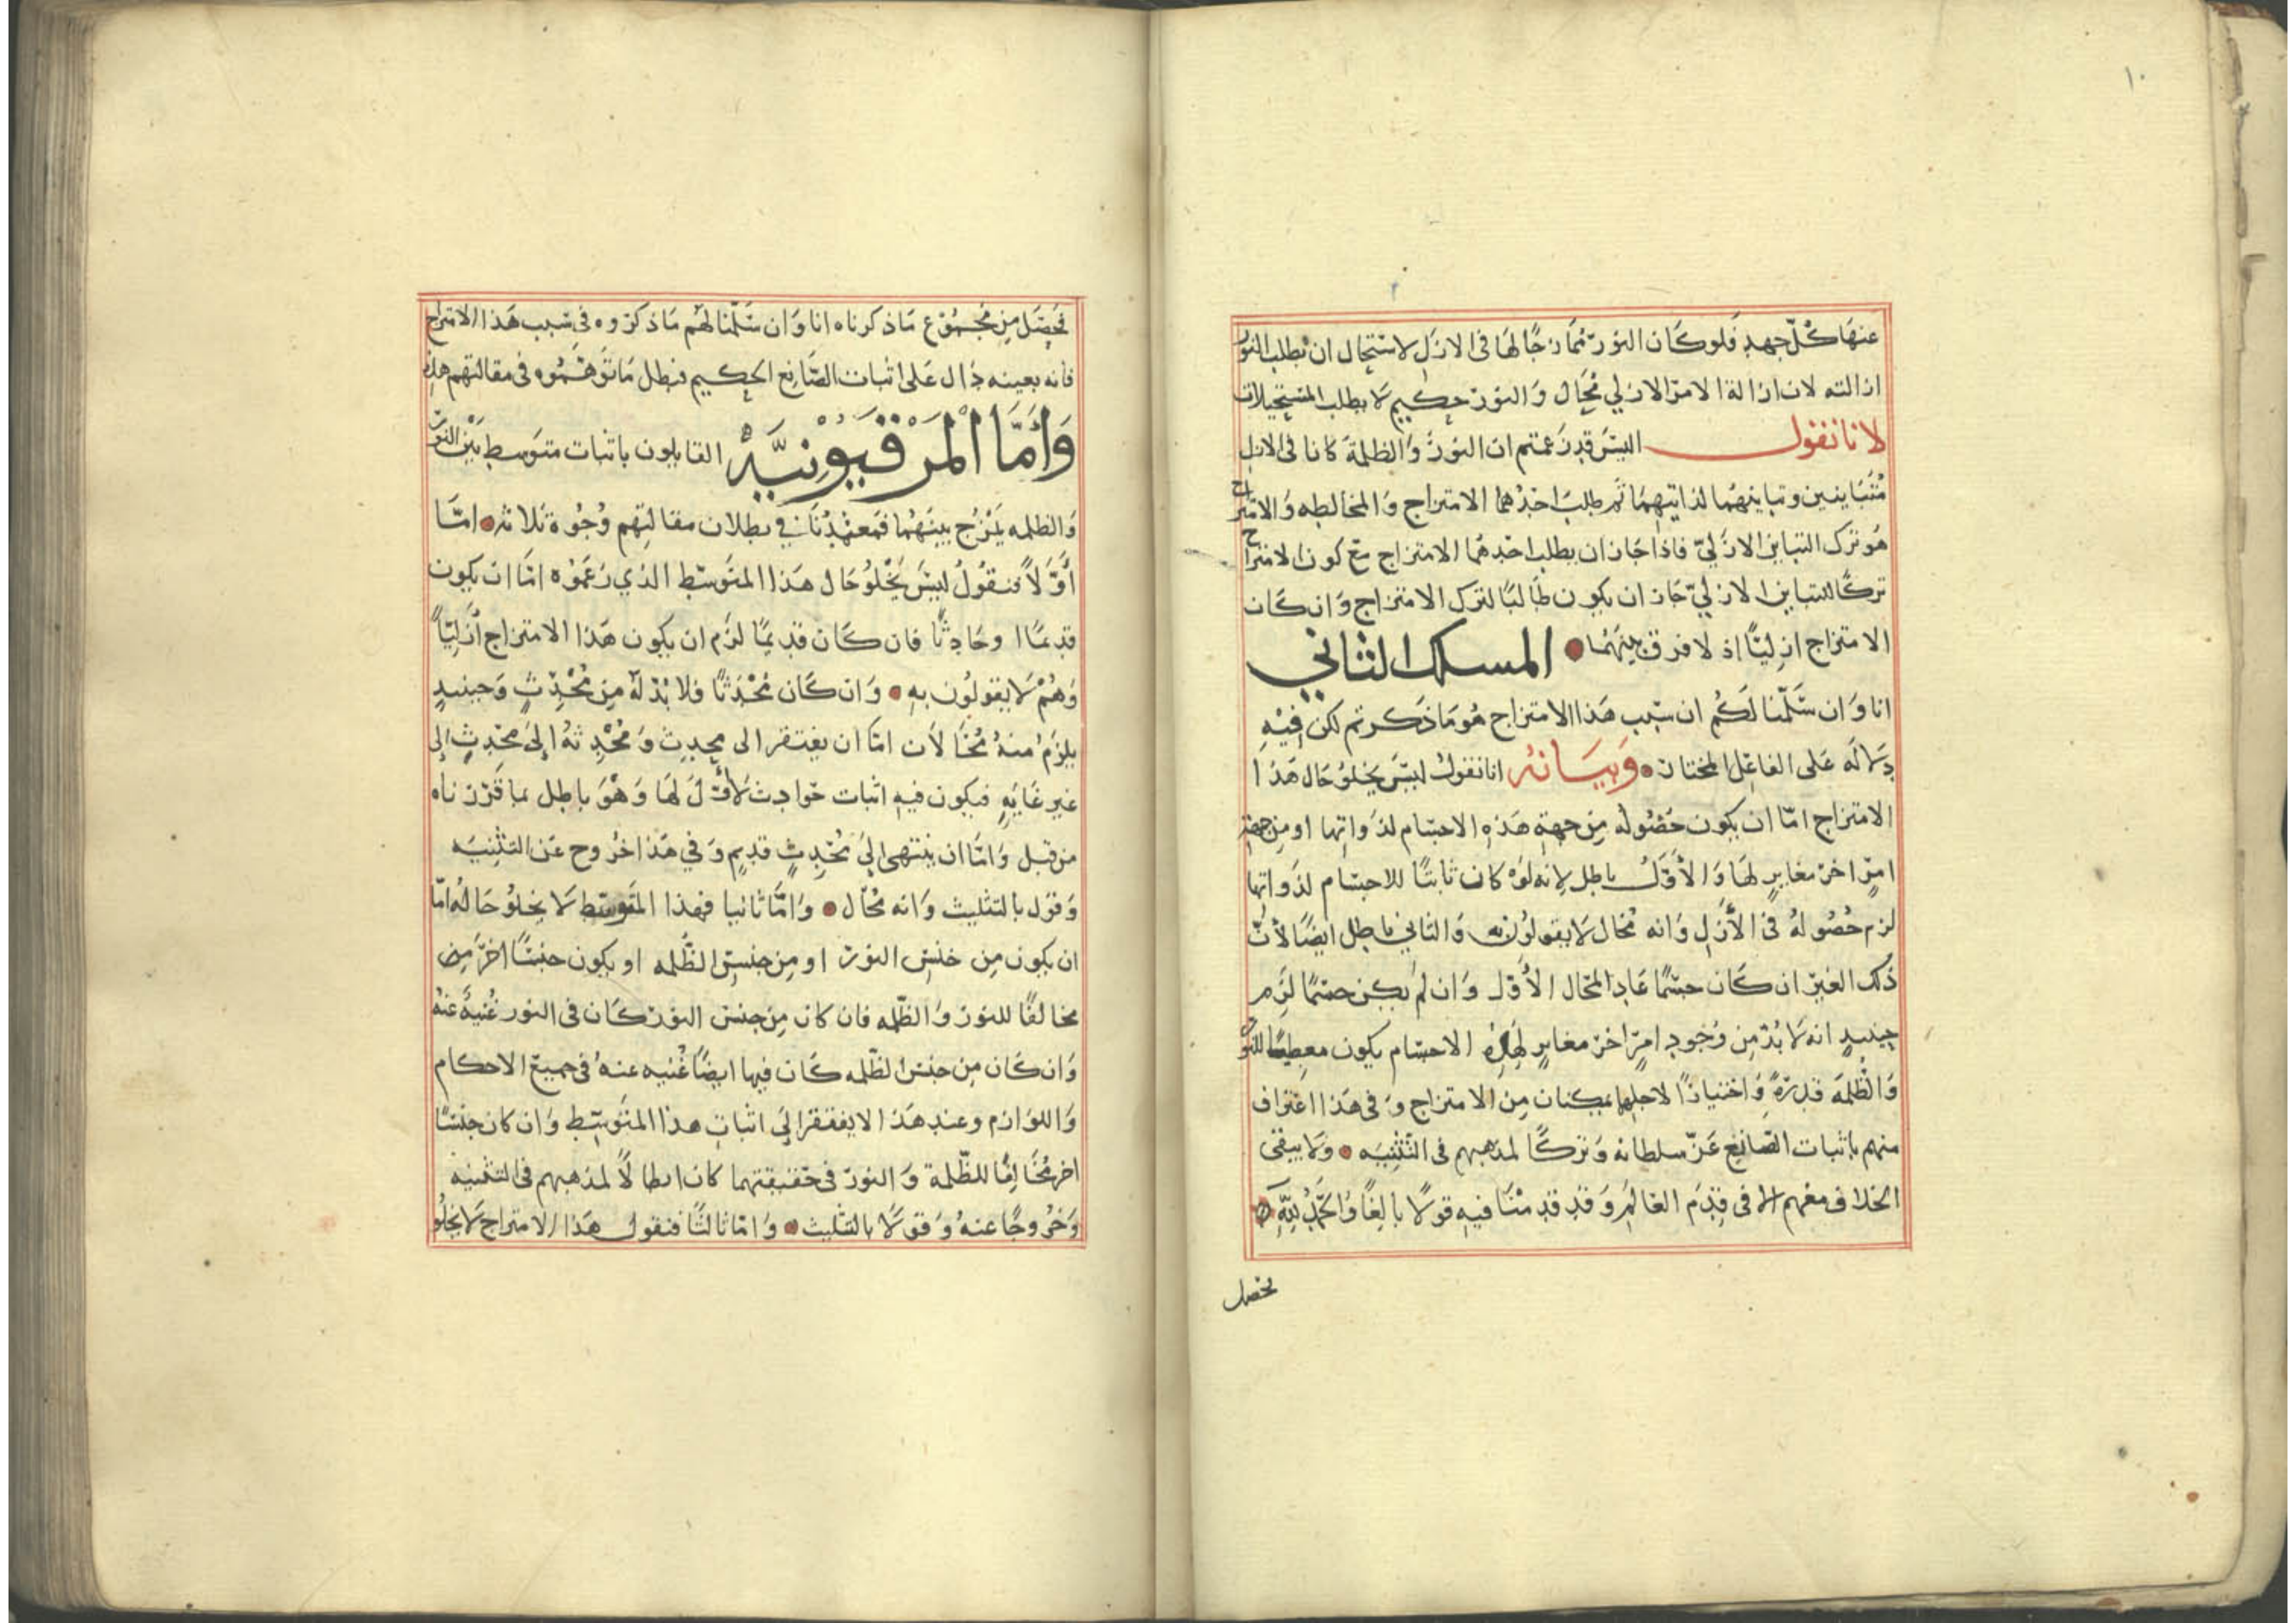 ١٠
عنها كل جهد فلو كان النور ممازجًا لها في الازل لاستحال ان يطلب النور
ازالته لان ازالة الامر الازلي محال والنور حكيم لا يطلب المستحيلات
لانا نقول اليس قد زعمتم ان النور والظلمة كانا في الازل
متباينين وتباينهما لذاتيهما ثم طلب احدهما الامتزاج والمخالطه والامتزاج
هو ترك التباين الازليّ فاذا جاز ان يطلب احدهما الامتزاج مع كون الامتزاج
تركًا للتباين الازليّ جاز ان يكون طالبًا لترك الامتزاج وان كان
الامتزاج ازليًّا اذ لا فرق بينهما المسلك الثاني
انا وان سلّمنا لكم ان سبب هذا الامتزاج هو ما ذكرتم لكن فيه
دلاله على الفاعل المختار وبيانه انا نقول ليس يخلو حال هذا
الامتزاج امّا ان يكون حصوله من جهة هذه الاجسام لذواتها او من جهة
امرٍ اخر مغايرٍ لها والأوّل باطل لانه لو كان ثابتًا للاجسام لذواتها
لزم حصوله في الأزل وانه محال لا يقولون به والثاني باطل ايضًا لأن
ذلك الغير ان كان جسمًا عاد المحال الأوّل وان لم يكن جسمًا لزم
حينيدٍ انه لا بدّ من وجود امرٍ اخر مغايرٍ لهذه الاجسام يكون معطيًا للنور
والظلمة قدرةً واختيارًا لاجلها يمكنان من الامتزاج وفي هذا اعتراف
منهم باثبات الصانع عزّ سلطانه وتركًا لمذهبهم في التّثنيه ولا يبقى
الخلاف معهم الا في قدم العالم وقد قدمنا فيه قولًا بالغًا والحمد لله
يحصل
يحصل من مجموع ما ذكرناه انا وان سلّمنا لهم ما ذكروه في سبب هذا الامتزاج
فانه بعينه دال على اثبات الصّانع الحكيم فبطل ما توهّموه في مقالتهم هذه
وَأَمَّا المَرْقَيُونِيَّهْ القايلون باثبات متوسطٍ بين النور
والظلمه يمزج بينهما فمعتمدنا في بطلان مقالتهم وجوه ثلاثه امّا
أوّلاً فنقول ليس يخلو حال هذا المتوسّط الذي زعموه امّا ان يكون
قديمًا او حادثًا فان كان قديمًا لزم ان يكون هذا الامتزاج أزليًّا
وهم لا يقولون به وان كان محدثًا فلا بدّ له من محدثٍ وحينيدٍ
يلزم منه محالان امّا ان يفتقر الى محدث ومحدثه الى محدثٍ الى
غير غايهٍ فيكون فيه اثبات حوادث لأوّل لها وهو باطل بما قرّرناه
من قبل وامّا ان ينتهي الى محدثٍ قديمٍ وفي هذا خروج عن التثنيه
وقول بالتثليث وانه محال وامّا ثانيا فهذا المتوسّط لا يخلو حاله امّا
ان يكون من جنس النور او من جنس الظّلمه او يكون جنسًا اخر من
مخالفًا للنور والظّلمه فان كان من جنس النور كان في النور غنيهٌ عنه
وان كان من جنس الظّلمه كان فيها ايضًا غنيه عنه في جميع الاحكام
واللوازم وعند هذا لا يفتقر الى اثبات هذا المتوسّط وان كان جنسًا
اخر مخالفًا للظّلمة والنور في حقيقتهما كان ابطالًا لمذهبهم في التثنيه
وخروجًا عنه وقولًا بالتثليث وامّا ثالثًا فنقول هذا الامتزاج لا يخلو